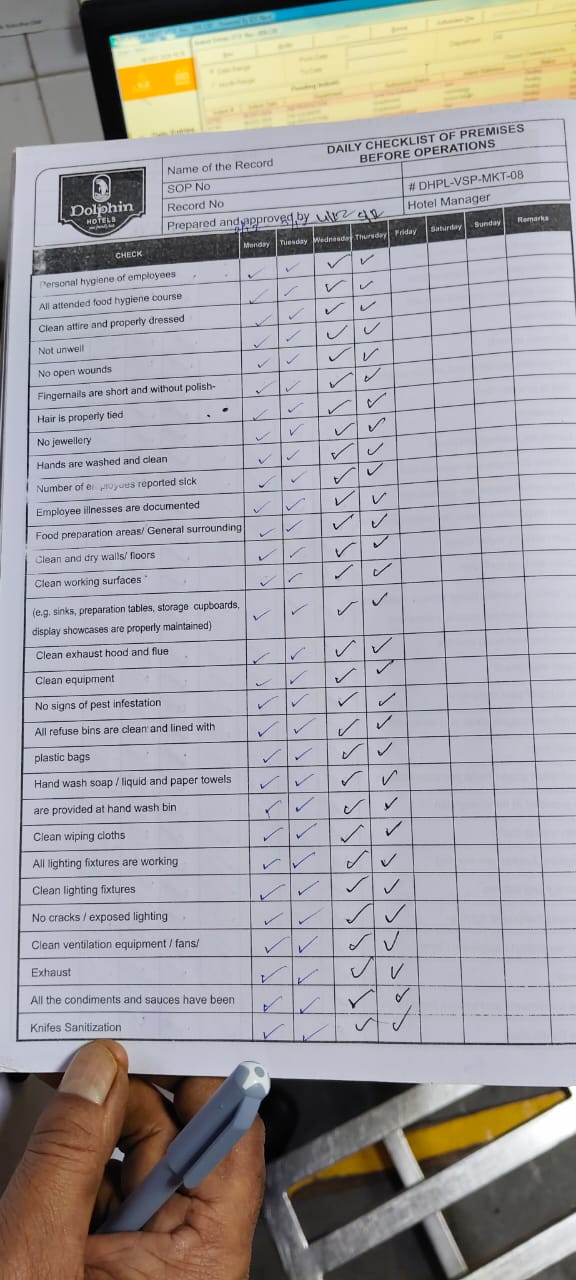 DAILY CHECKLIST OF PREMISES
BEFORE OPERATIONS
Name of the Record
SOP No
# DHPL-VSP-MKT-08
Record No
Hotel Manager
Prepared and approved by
Dolphin
HOTELS
CHECK Monday Tuesday Wednesday Thursday Friday Saturday Sunday Remarks
Personal hygiene of employees ✓ ✓ ✓ ✓
All attended food hygiene course ✓ ✓ ✓ ✓
Clean attire and properly dressed ✓ ✓ ✓ ✓
Not unwell ✓ ✓ ✓ ✓
No open wounds ✓ ✓ ✓ ✓
Fingernails are short and without polish- ✓ ✓ ✓ ✓
Hair is properly tied ✓ ✓ ✓ ✓
No jewellery ✓ ✓ ✓ ✓
Hands are washed and clean ✓ ✓ ✓ ✓
Number of employees reported sick ✓ ✓ ✓ ✓
Employee illnesses are documented ✓ ✓ ✓ ✓
Food preparation areas/ General surrounding ✓ ✓ ✓ ✓
Clean and dry walls/ floors ✓ ✓ ✓ ✓
Clean working surfaces ✓ ✓ ✓ ✓
(e.g. sinks, preparation tables, storage cupboards,
display showcases are properly maintained) ✓ ✓ ✓ ✓
Clean exhaust hood and flue ✓ ✓ ✓ ✓
Clean equipment ✓ ✓ ✓ ✓
No signs of pest infestation ✓ ✓ ✓ ✓
All refuse bins are clean and lined with ✓ ✓ ✓ ✓
plastic bags ✓ ✓ ✓ ✓
Hand wash soap / liquid and paper towels ✓ ✓ ✓ ✓
are provided at hand wash bin ✓ ✓ ✓ ✓
Clean wiping cloths ✓ ✓ ✓ ✓
All lighting fixtures are working ✓ ✓ ✓ ✓
Clean lighting fixtures ✓ ✓ ✓ ✓
No cracks / exposed lighting ✓ ✓ ✓ ✓
Clean ventilation equipment / fans/ ✓ ✓ ✓ ✓
Exhaust ✓ ✓ ✓ ✓
All the condiments and sauces have been ✓ ✓ ✓ ✓
Knifes Sanitization ✓ ✓ ✓ ✓